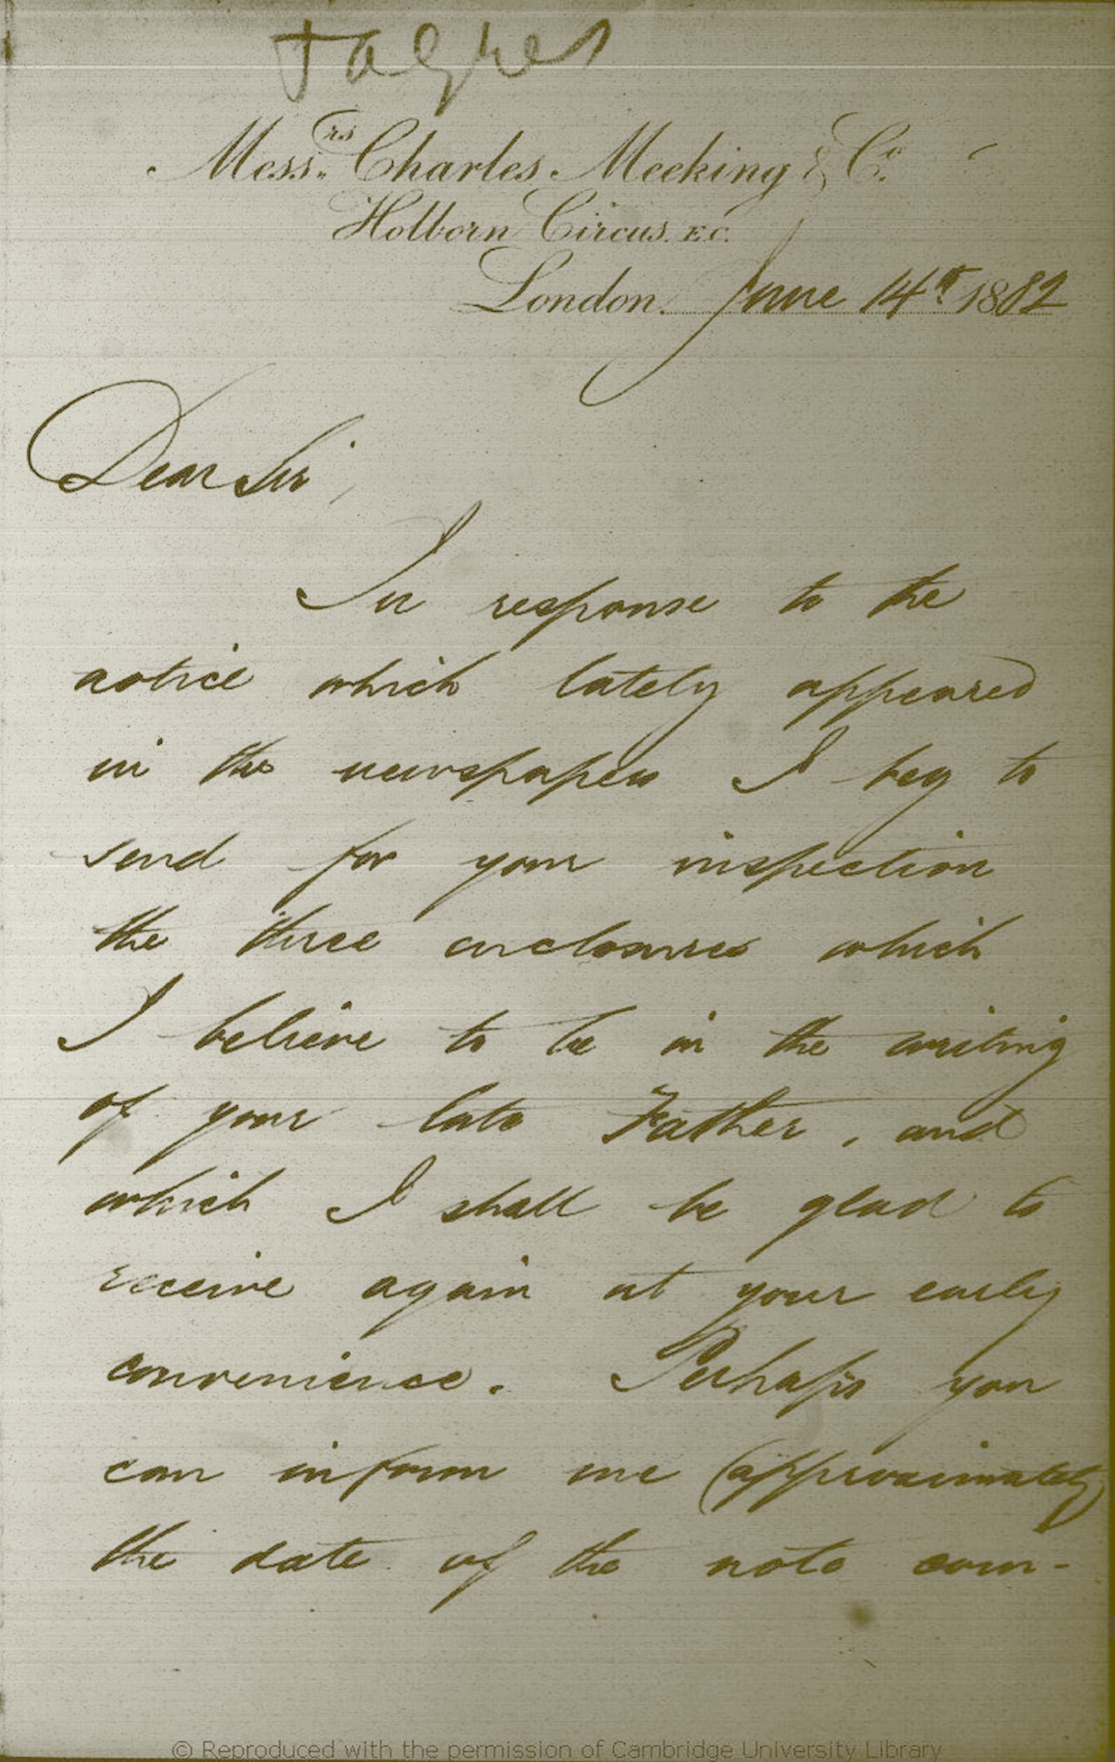 Messrs. Charles Meeking & Co.
Holborn Circus. E.C.
London. June 14th 1882
Dear Sir,
In response to the
notice which lately appeared
in the newspapers I beg to
send for your inspection
the three enclosures which
I believe to be in the writing
of your late Father, and
which I shall be glad to
receive again at your early
convenience. Perhaps you
can inform me (approximately)
the date of the note com-
© Reproduced with the permission of Cambridge University Library